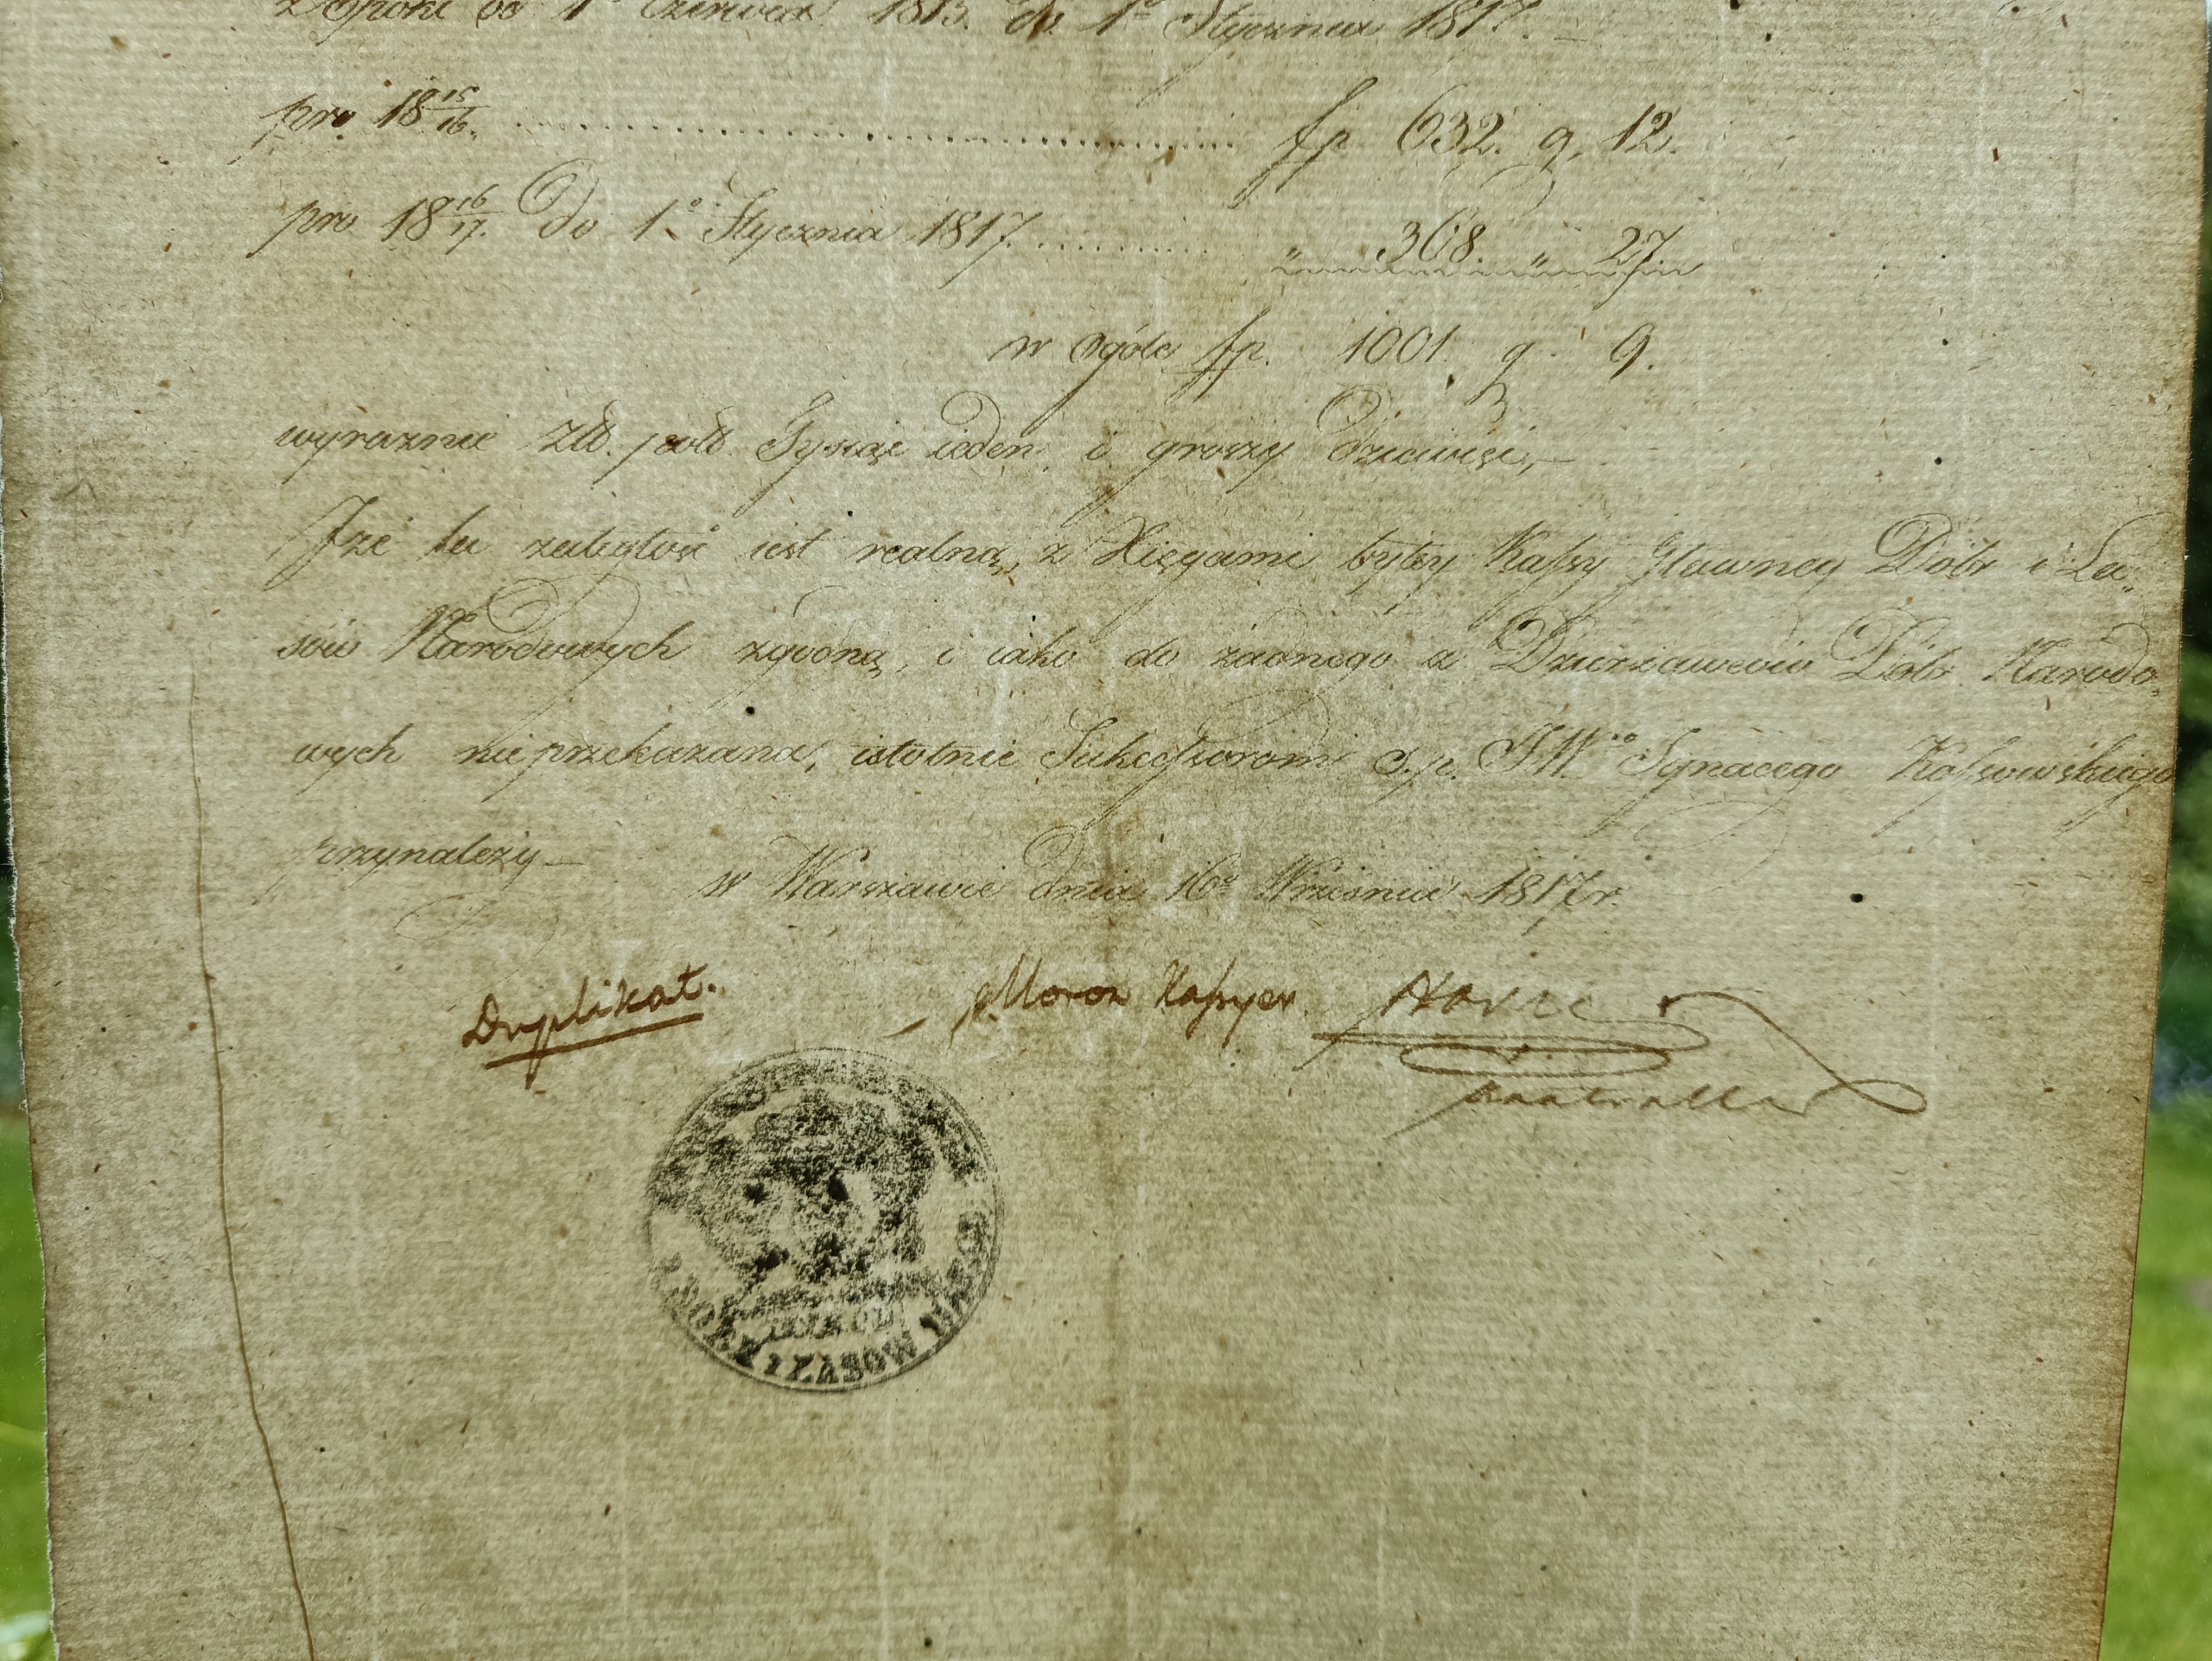 z Epoki od 1º Czerwca 1815. do 1º Stycznia 1817. —
pro 18 15/16. .................... fp 632. g. 12.
pro 18 16/17. do 1º Stycznia 1817. .......... " 368. " 27
w ogóle fp. 1001. g. 9.
wyraznie Złł. polł. Tysiąc ieden i groszy dziewięć, —
Jże ta zaległość iest realną, z Xięgami byłey Kassy Głowney Dóbr i La„
sów Narodowych zgodną, i iako do żadnego z Dzierzawców Dóbr Narodo„
wych nieprzekazana, istotnie Sukcessorom ś. p. JWº Ignacego Kossowskiego
przynależy —
w Warszawie dnia 16º Września 1817 r.
Duplikat.
Moroz Kassyer.
DÓBR I LASÓW NAROD